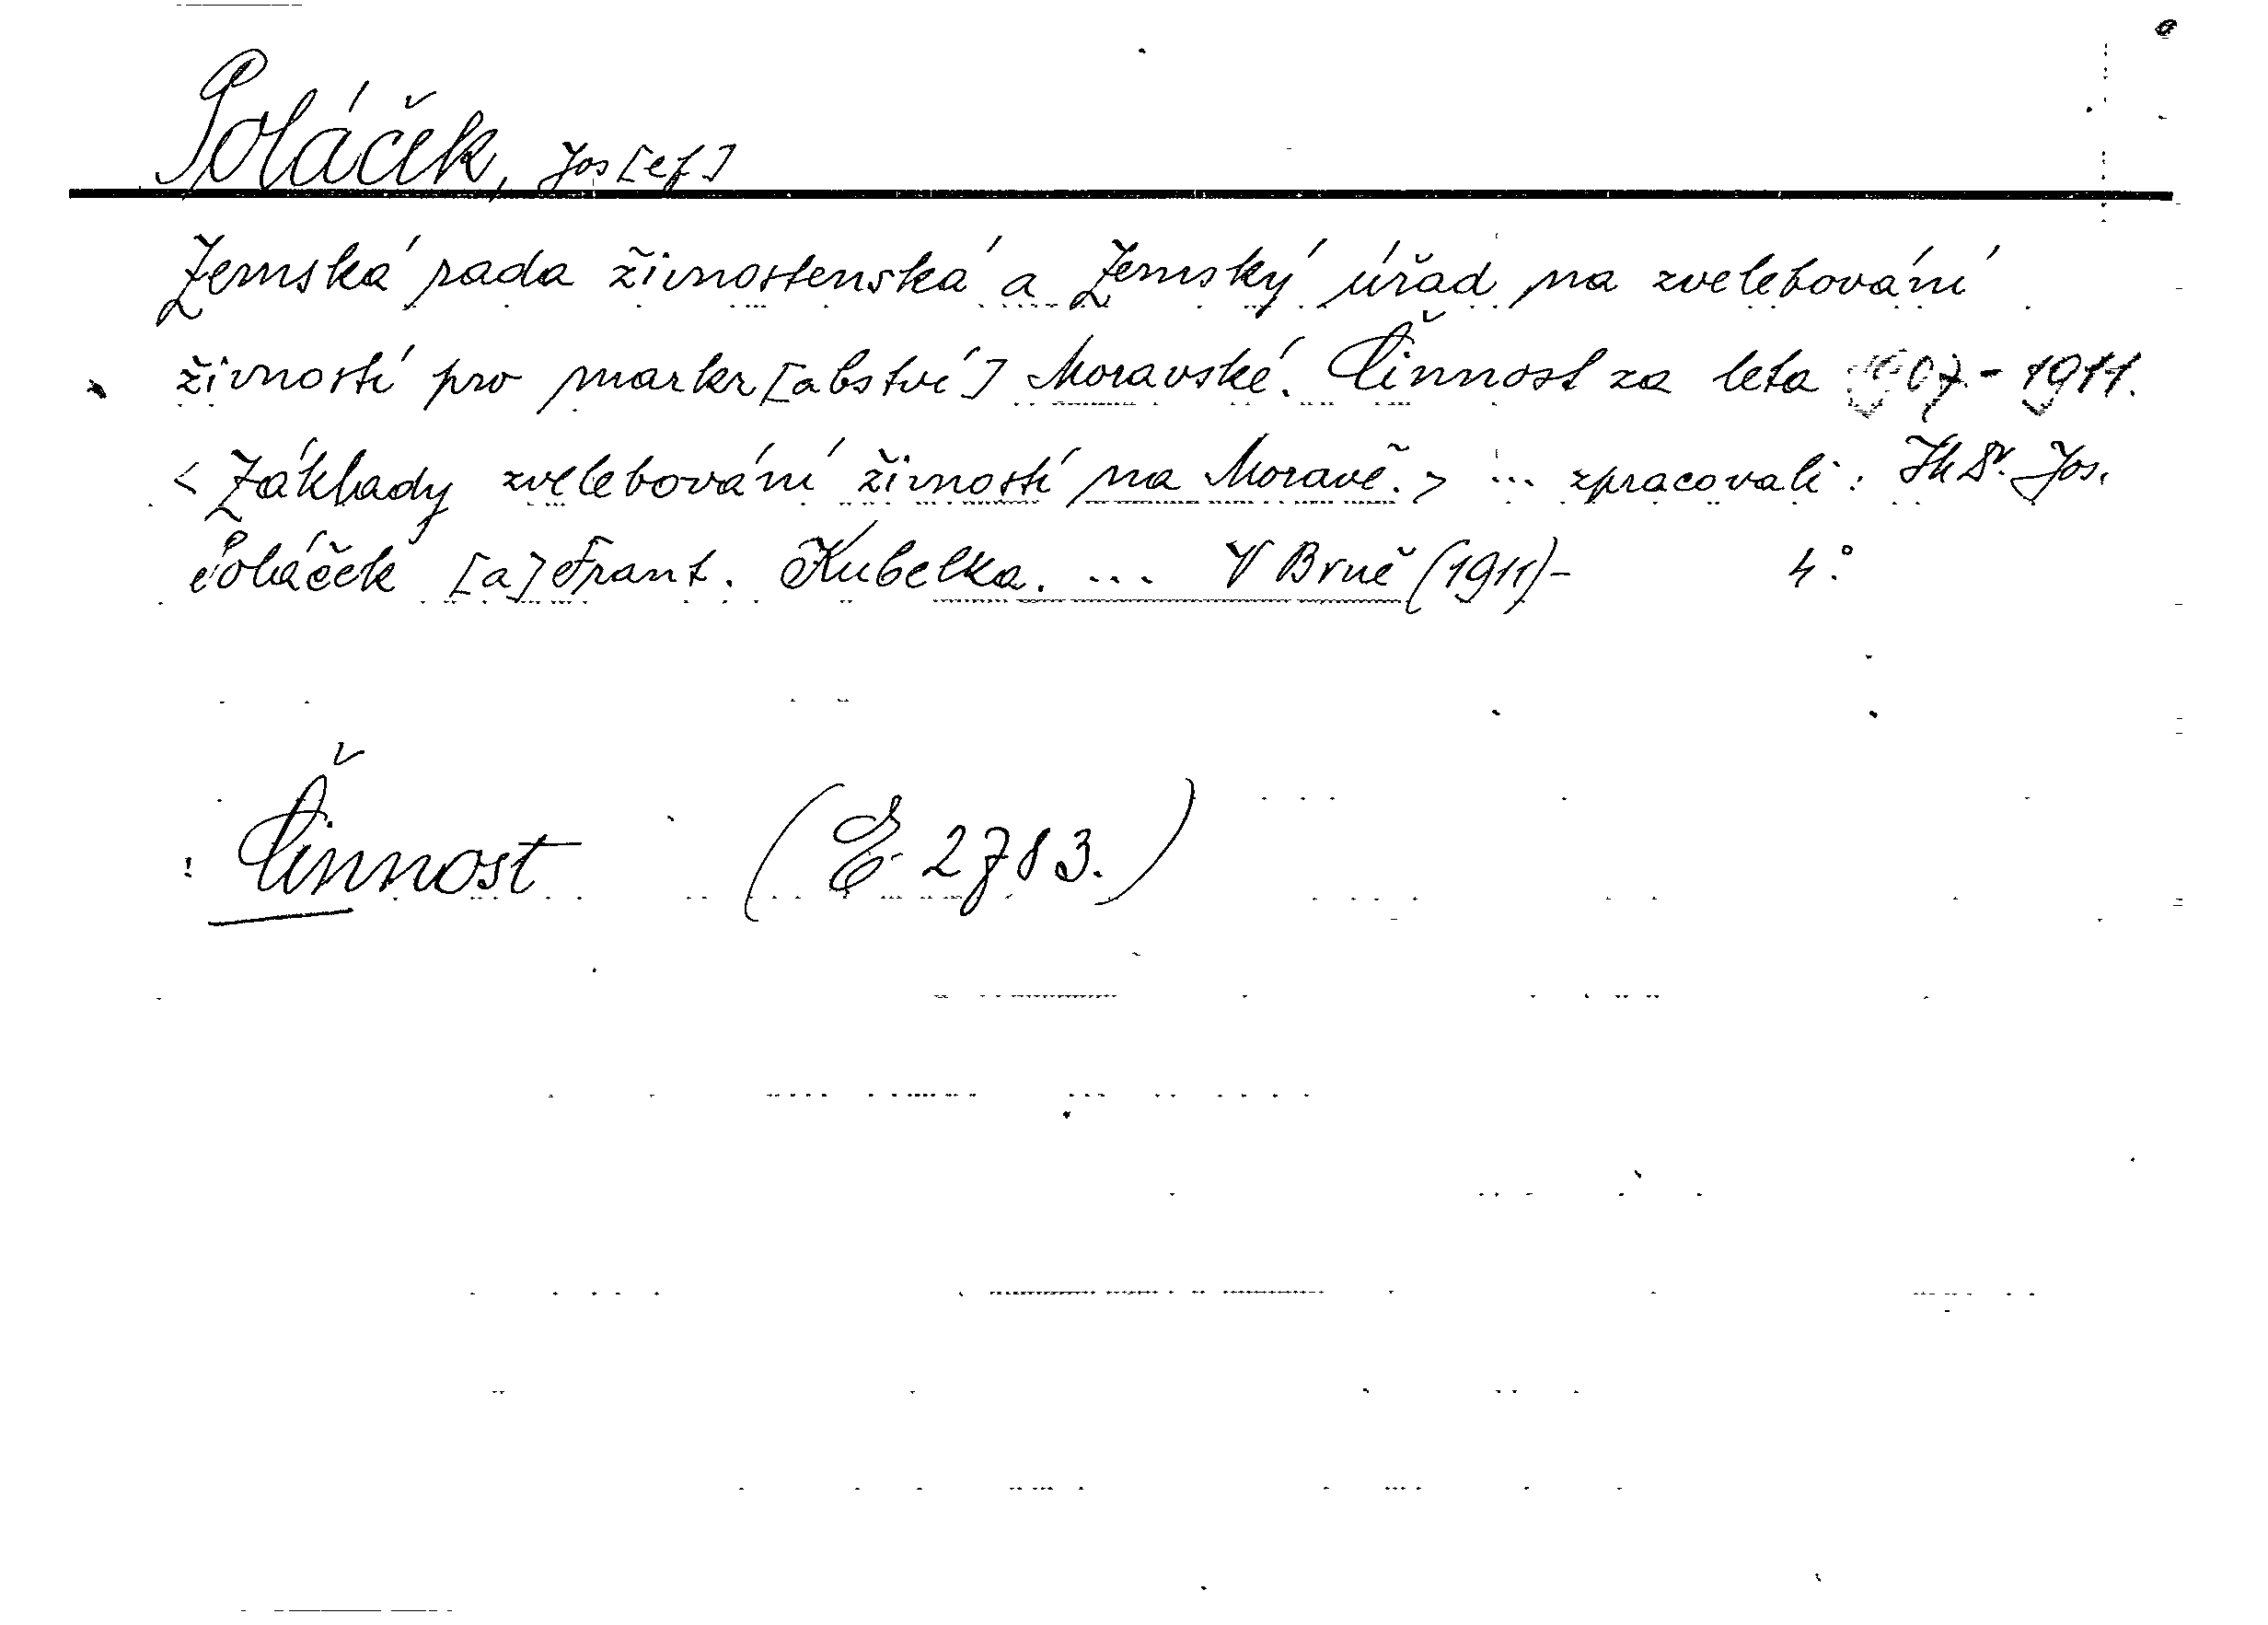 Poláček, Jos[ef]
Zemská rada živnostenská a Zemský úřad na zvelebování
živností pro markr[abství] Moravské. Činnost za leta 1907-1911.
<Základy zvelebování živností na Moravě.> ... zpracovali: Jos.
Poláček [a] Frant. Kubelka. ... V Brně (1911)- 4°.
Činnost (E 2783.)